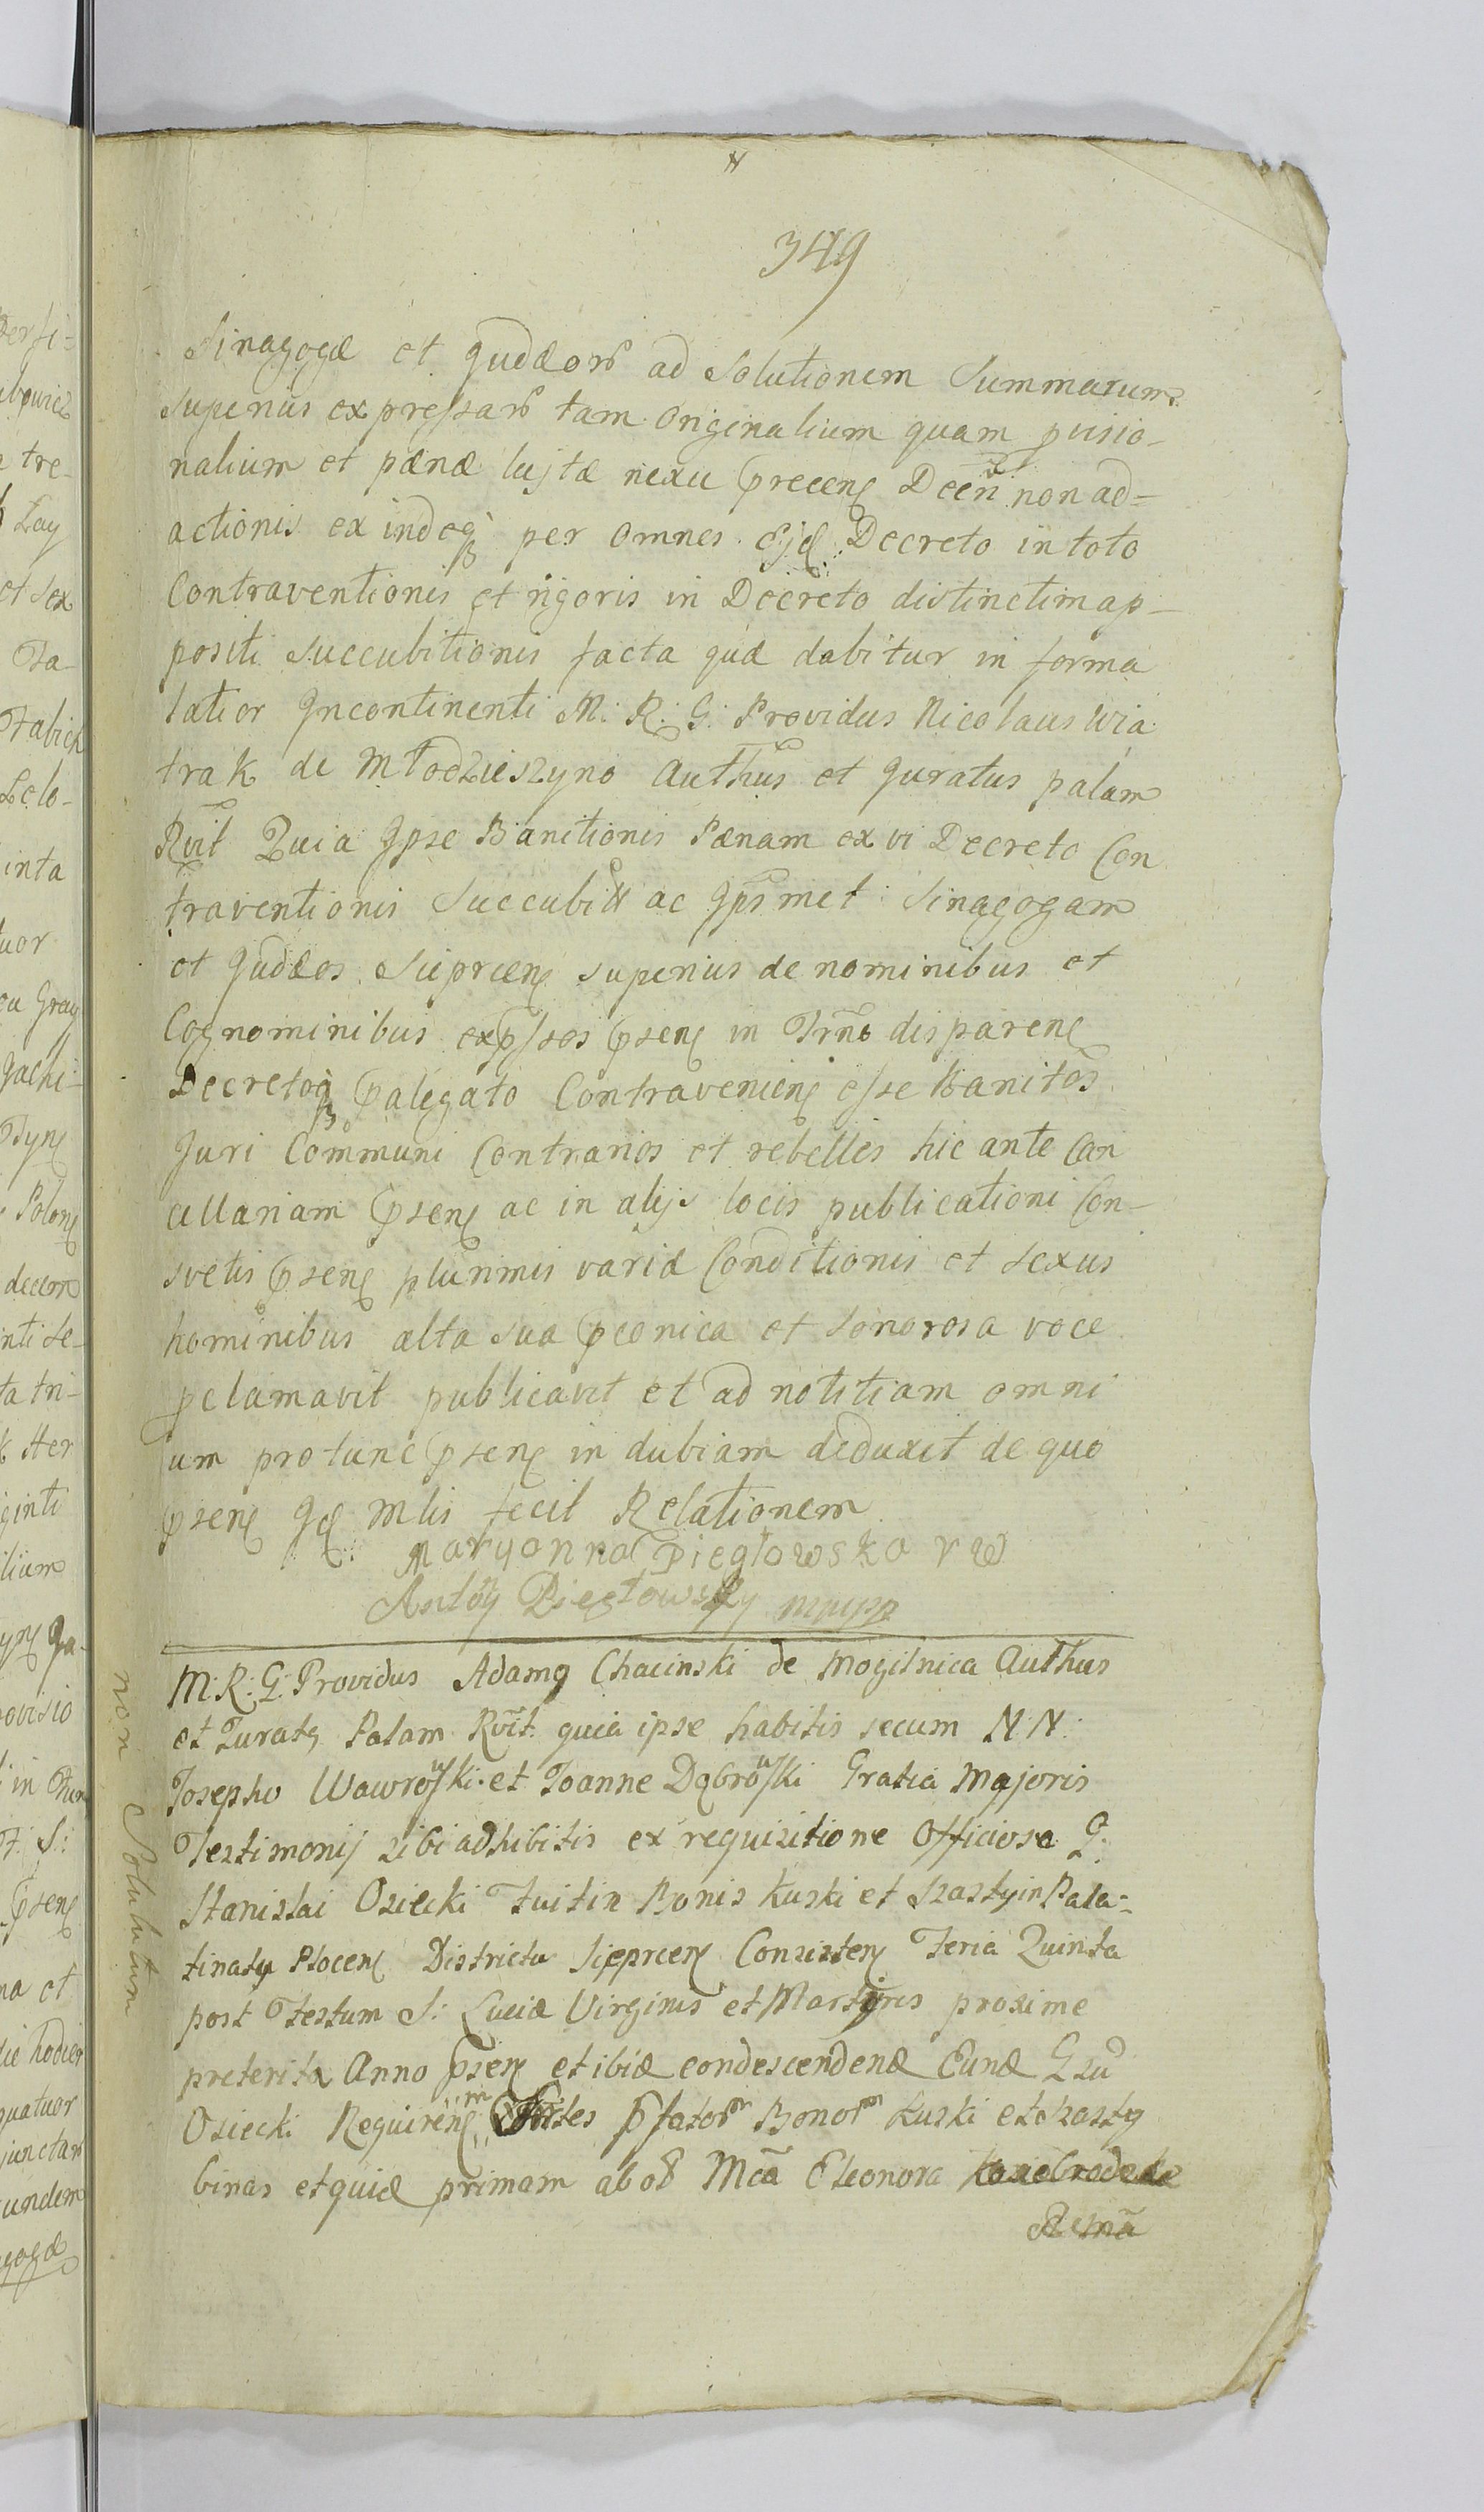 349
Sinagogæ et Judæorū ad Solutionem Summarum
Superius expressarū tam Originalium quam pvisio-
nalium et pænæ lujtæ nexu præcen Decri non ad-
actionis ex indeq per omnes Ejd Decreto in toto
Contraventionis et rigoris in Decreto distinctim ap-
positi Succubitionis facta quæ dabitur in forma
latior Incontinenti M: R: G: Providus Nicolaus Wia
trak de Młodzieszyno Authus et Juratus palam
Rvit Quia Ipse Banitionis Pænam ex vi Decreto Con
traventionis Succubitæ ac Ipsmet Sinagogam
et Judæos Sieprcen superius de nominibus et
Cognominibus expssos psen in Trno disparen
Decretoq palegato Contravenien esse Banitos
Juri Communi Contrarios et rebelles hic ante Can
cellariam psen ac in alijs locis publicationi Con-
svetis psen plurimis variæ Conditionis et sexus
hominibus alta sua pconica et sonorosa voce
pclamavit publicavit et ad notitiam omni
um protunc psen in dubiam deduxit de quo
psen Id Mlis fecit Relationem
Maryanna Piegłowska r w
Antoy Piegłowsky mpp
M: R: G: Providus Adamq Chacinski de Mogilnica Authus
et Juratq Palam Rvit quia ipse habitis secum N: N:
Josepho Wawroski et Joanne Dąbroski Gratia Majoris
Testimonij sibi adhibitis ex requisitione Officiosa G:
Stanislai Osiecki Fuit in Bonis Kuski et Szasty in Pala-
tinatu Płocen Districtu Sieprcen Consisten Feria Quinta
post Festum S: Luciæ Virginis et Martyris proxime
preterita Anno psen et ibiđ condescendenđ Eunđ Gsu
Osiecki Requiren Sortes pfator Bonor Kuski et Szasty
binas et quiđ primam ab oß Mca Eleonora
non Solutum